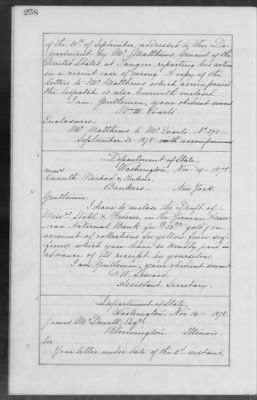 258
of the 20th of September, addressed to this De-
partment by Mr. Matthews Consul of the
United States at Tangier, reporting his action
in a recent case of wrong. A copy of the
letters to Mr. Matthews which accompanied
the despatch is also herewith enclosed.
I am, Gentlemen, your obedient servant
Wm. M. Evarts.
Enclosures.
Mr. Matthews to Mr. Evarts. No.
September 20. 1878. with accompani
Department of State,
Washington, Nov. 1878.
Messrs
Knauth Nachod & Kuhne.
Bankers New York
Gentlemen,
I have to enclose the Draft of
Messrs. Stahl & on the German Amer-
ican National Bank for gold on
account of contribution for yellow fever suf-
ferers which you have so kindly paid in
advance of its receipt by yourselves.
I am, Gentlemen, your obedient servant
F. W. Seward,
Assistant Secretary.
Department of State,
Washington, Nov. 14 1878.
James McDowell, Esq.
Bloomington Illinois.
Sir
Your letter under date of the instant,